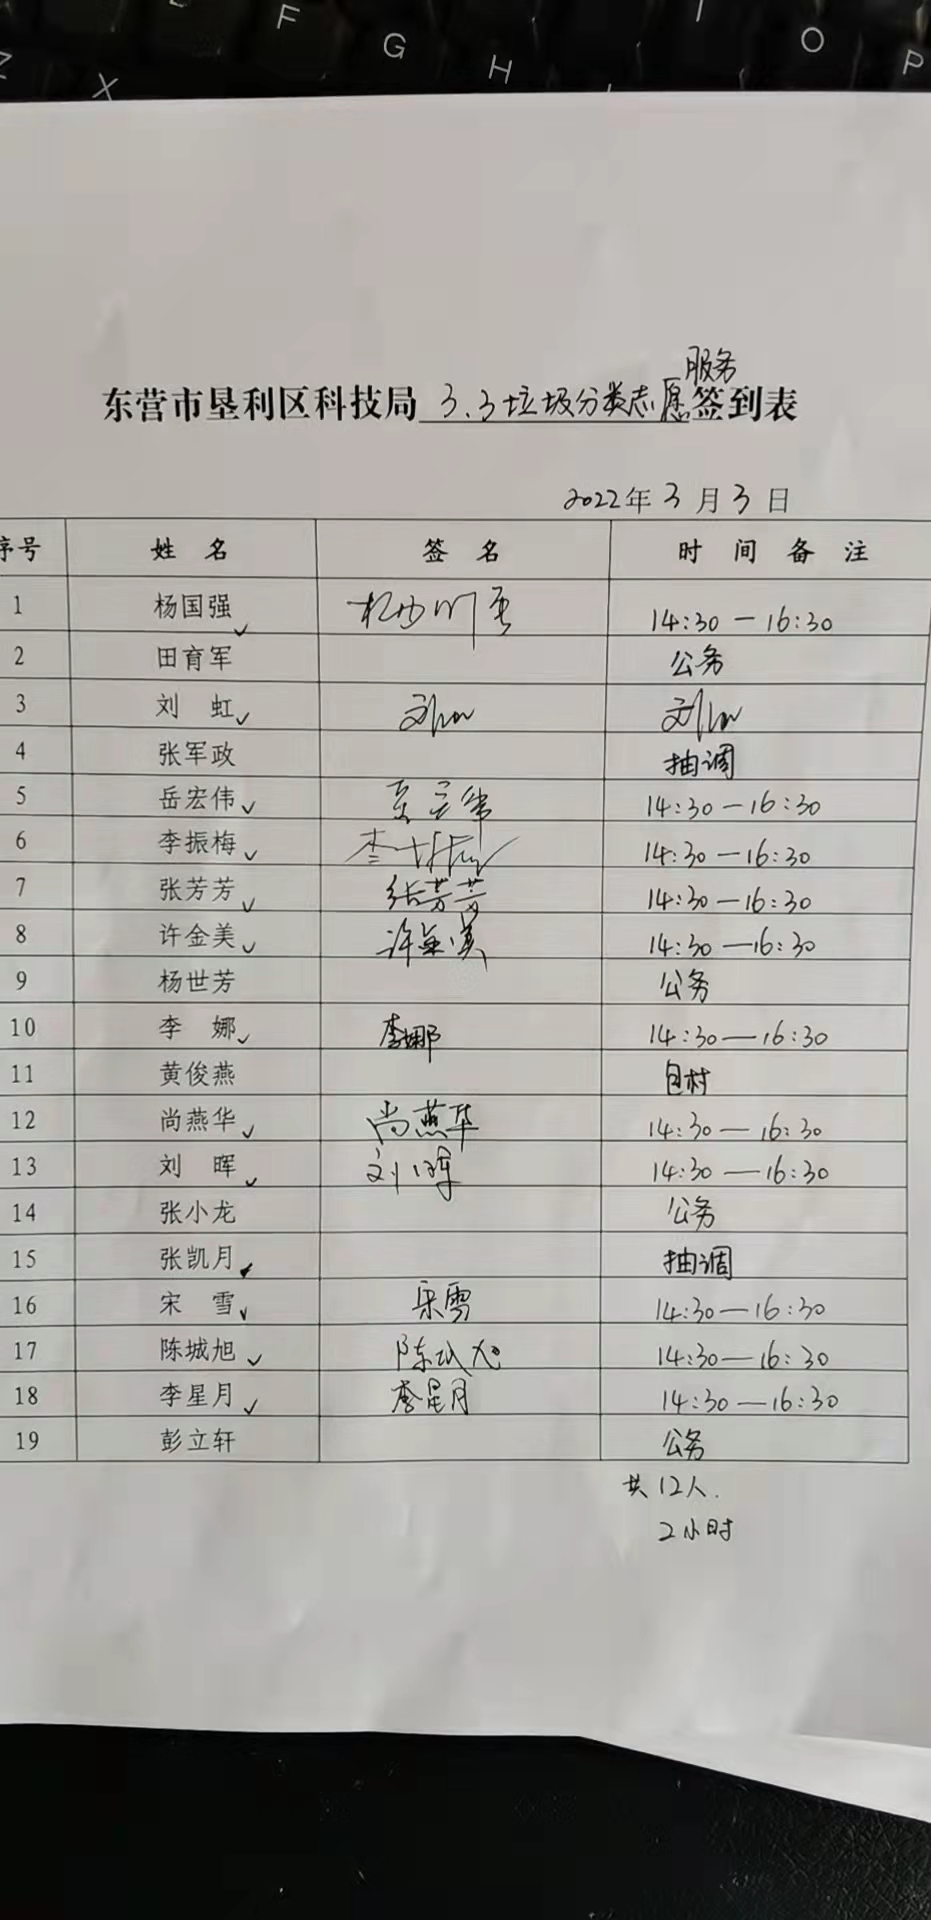 F G H I O P
Z X
服务
东营市垦利区科技局 3.3垃圾分类志愿签到表
2022年3月3日
序号 姓名 签名 时间备注
1 杨国强✓ 14:30—16:30
2 田育军 公务
3 刘虹✓ 刘虹 刘虹
4 张军政 抽调
5 岳宏伟✓ 岳宏伟 14:30—16:30
6 李振梅✓ 李振梅 14:30—16:30
7 张芳芳✓ 张芳芳 14:30—16:30
8 许金美✓ 许金美 14:30—16:30
9 杨世芳 公务
10 李娜✓ 李娜 14:30—16:30
11 黄俊燕 包村
12 尚燕华✓ 尚燕华 14:30—16:30
13 刘晖✓ 刘晖 14:30—16:30
14 张小龙 公务
15 张凯月 抽调
16 宋雪✓ 宋雪 14:30—16:30
17 陈城旭✓ 陈城旭 14:30—16:30
18 李星月✓ 李星月 14:30—16:30
19 彭立轩 公务
共12人.
2小时